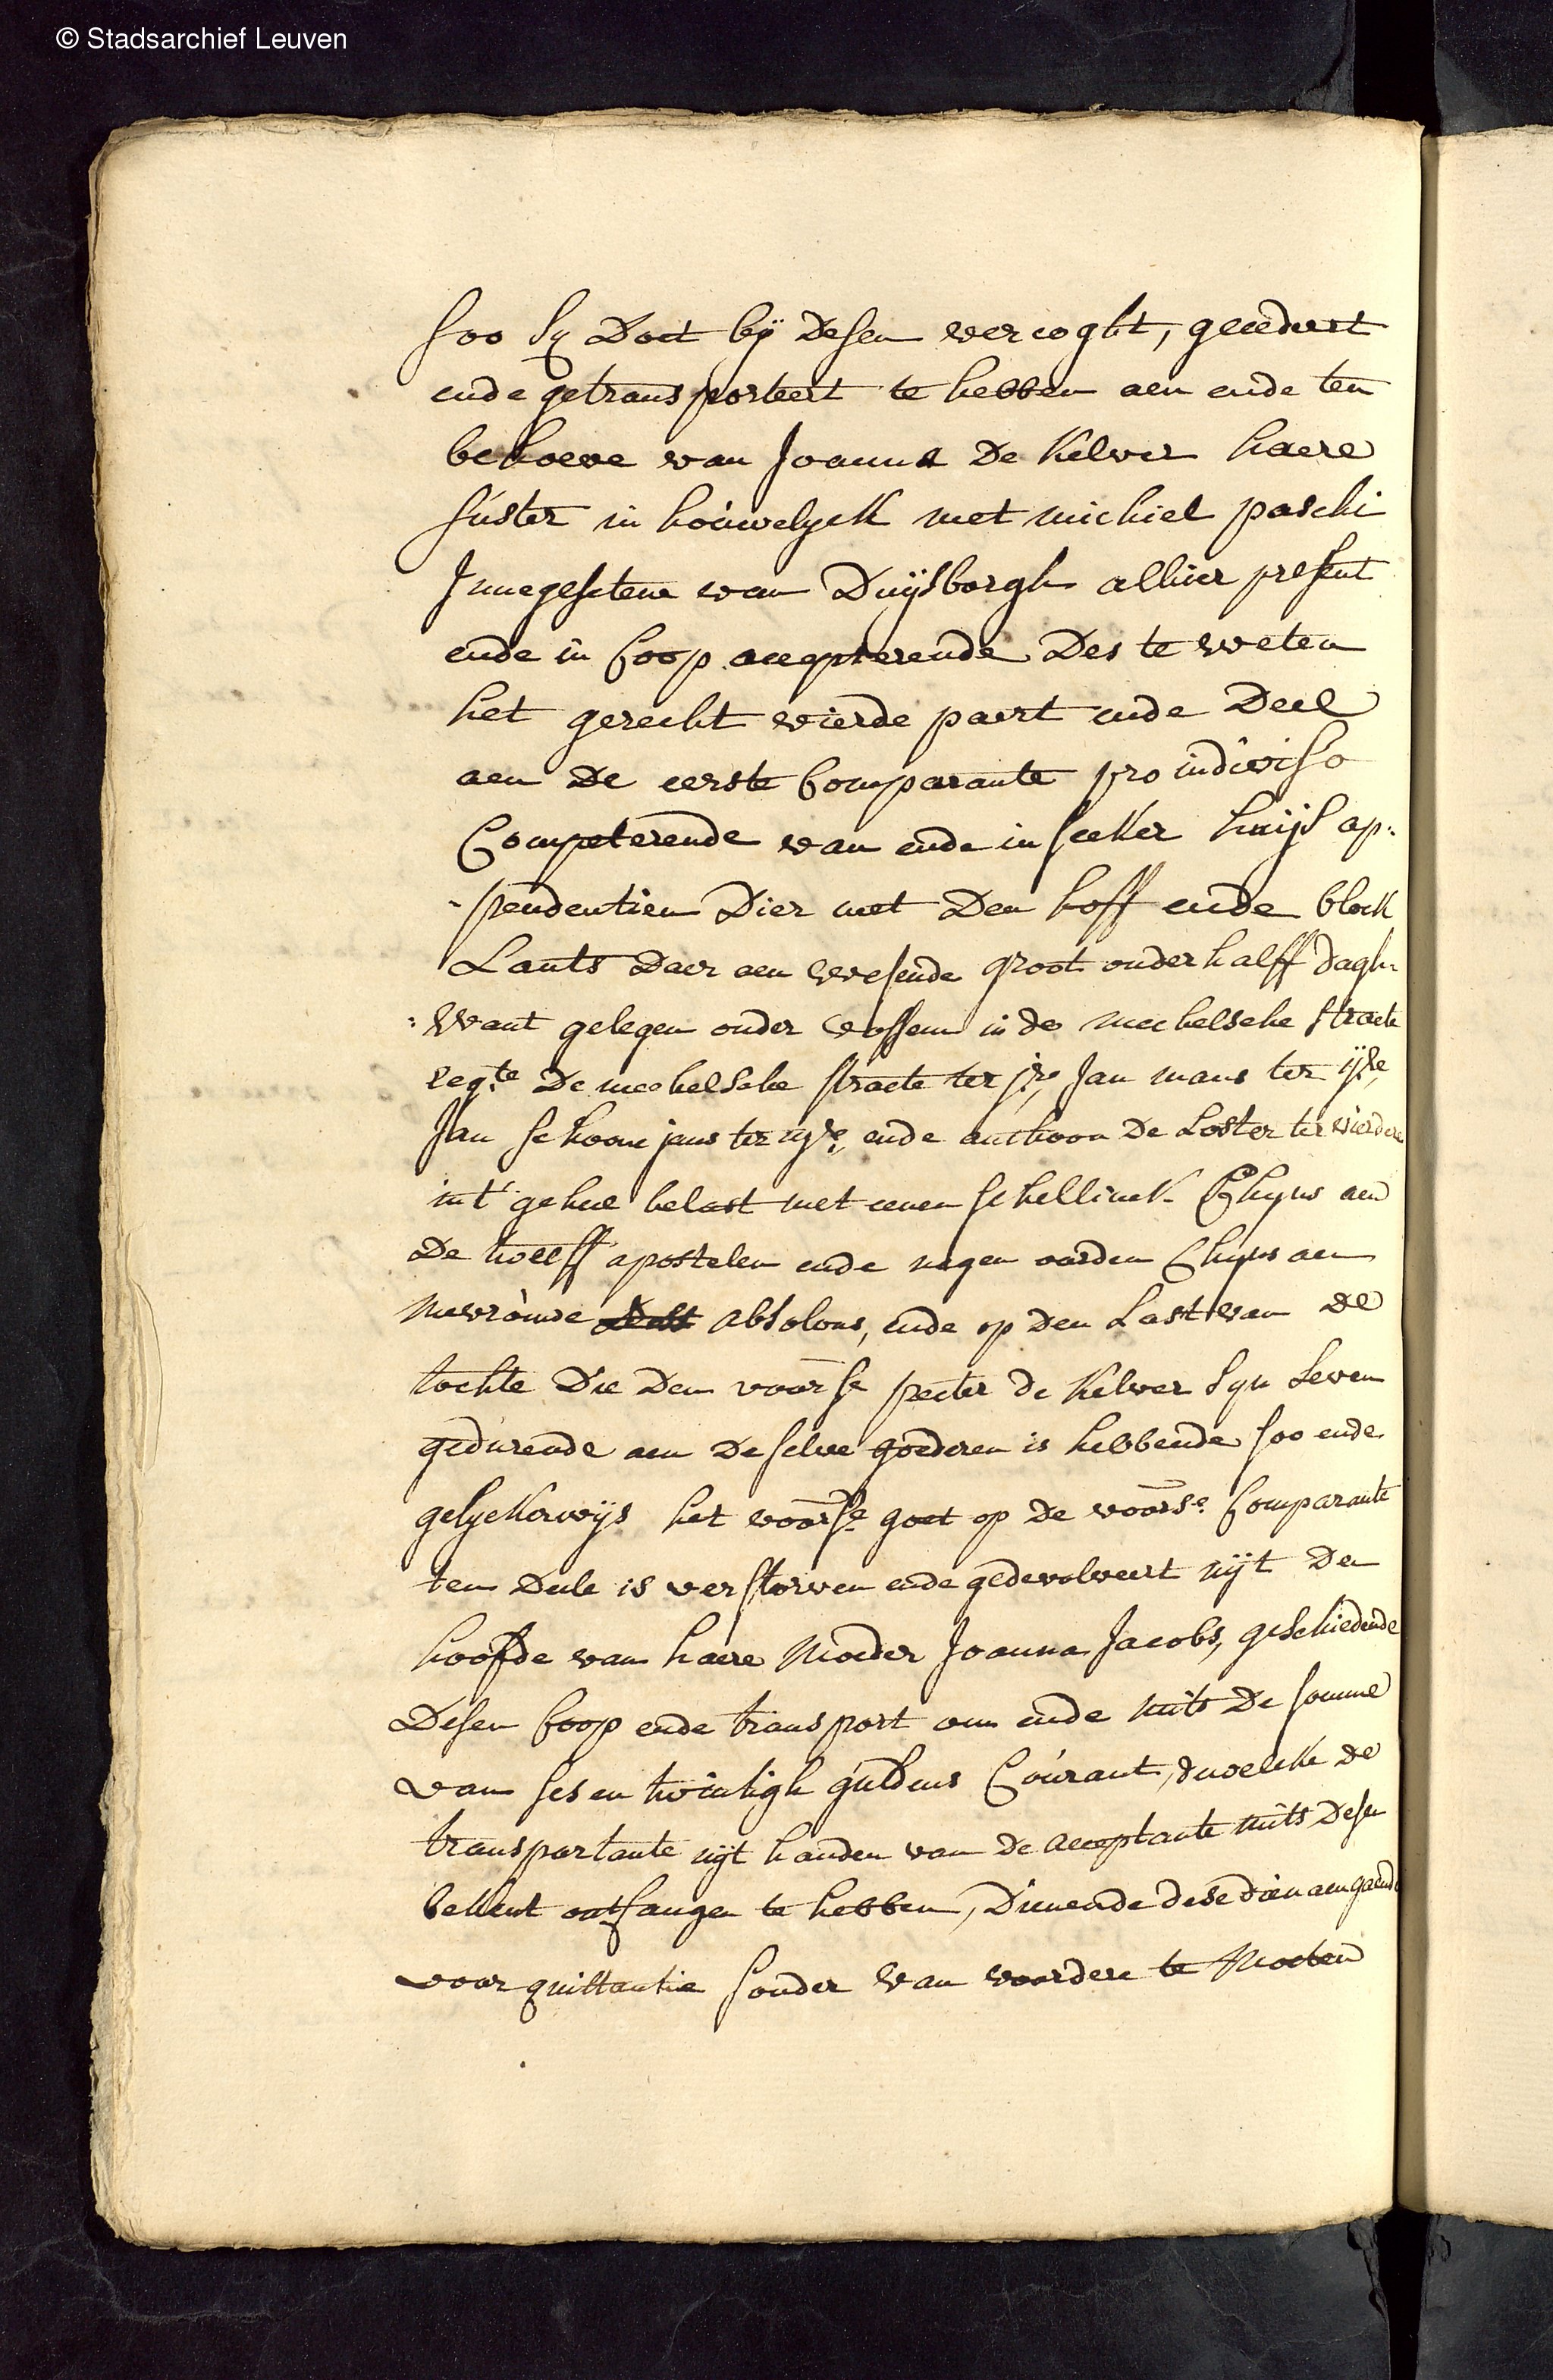 © Stadsarchief Leuven
soo sy doet bij desen vercoght, gecedeert
ende getransporteert te hebben aen ende ten
behoeve van Joanna De Kelver haere
suster in houwelyck met michiel paschi
Innegesetene van Duijsborgh alhier present
ende in coop accepterende Des te weten
het gerecht vierde paert ende Deel
aen De eerste Comparante pro indiviso
Competerende van ende in seeker huijs ap-
-pendentien Dier met Den hoff ende block
Lants daer aen wesende groot onderhalff dagh-
:want gelegen onder vossem in de mechelsche straete
reg.te De mechelsche straete ter j.re, Jan mans ter ij.re,
Jan schoonejans ter iij.re, ende anthoon De Coster ter vierdere
int' geheel belast met eenen schellinck Chyns aen
De twelff apostelen ende negen oorden Chyns aen
mevrouwe absolons, ende op den Last van de
tochte Die Den voorse peeter de Kelver syn Leven
gedurende aen De selve goederen is hebbende soo ende
gelyckerwijs het voorse goet op de voorse Comparante
ten Deele is verstorven ende gedevolveert uijt Den
hoofde van haere Moeder Joanna Jacobs, geschiedende
Desen Coop ende transport om ende mits De somme
van sesentwintigh guldens Courant, dwelcke de
transportante uijt handen van de acceptante mits desen
bekent ontfangen te hebben, Dienende dese dien aengaende
voor quittantie sonder van voordere te Moeten